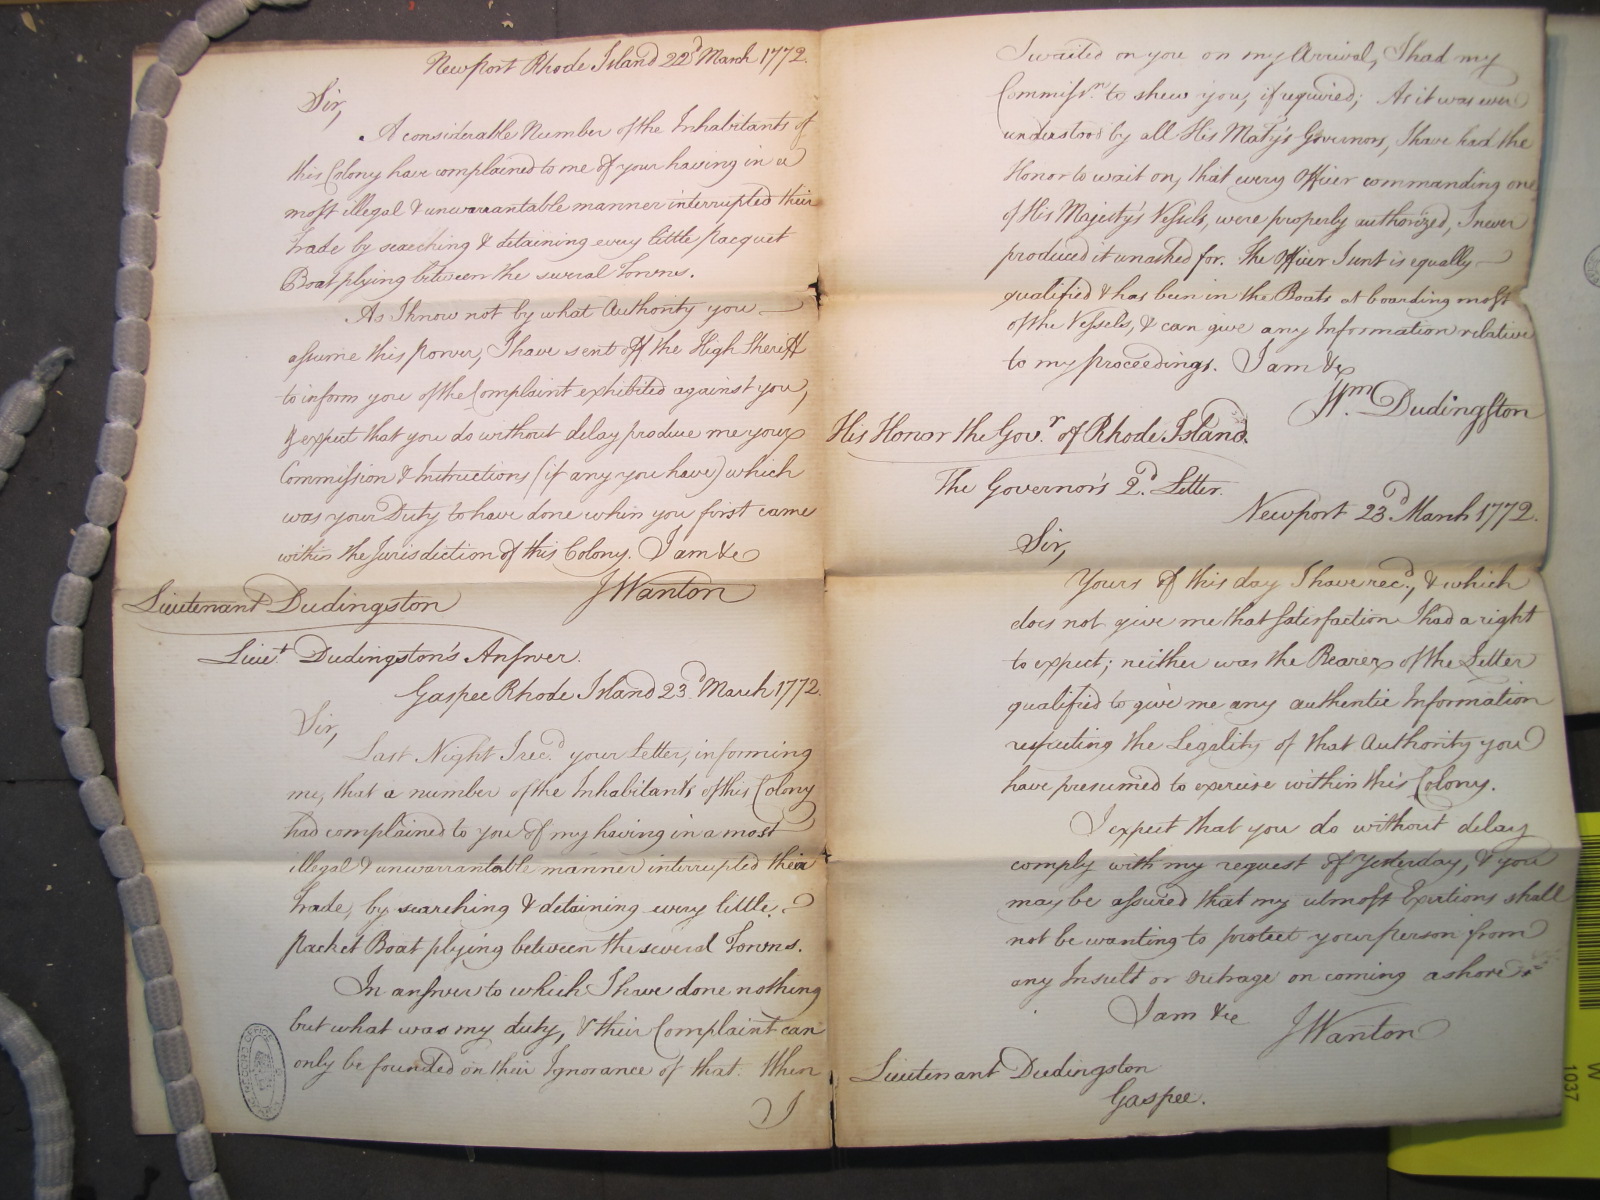 Newport Rhode Island 22d March 1772.
Sir,
A considerable Number of the Inhabitants of
this Colony have complained to me of your having in a
most illegal & unwarrantable manner interrupted their
trade by searching & detaining every little Pacquet
Boat plying between the several Towns.
As I know not by what Authority you
assume this Power, I have sent off the High Sheriff
to inform you of the Complaint exhibited against you,
& expect that you do without delay produce me your
Commission & Instructions (if any you have) which
was your Duty to have done when you first came
within the Jurisdiction of this Colony. I am &c
J Wanton
Lieutenant Dudingston
Lieut. Dudingston's Answer.
Gaspee Rhode Island 23d March 1772.
Sir,
Last Night I recd. your Letter, informing
me, that a number of the Inhabitants of this Colony
had complained to you of my having in a most
illegal & unwarrantable manner interrupted their
trade, by searching & detaining every little
Packet Boat plying between the several Towns.
In answer to which I have done nothing
but what was my duty, & their Complaint can
only be founded on their Ignorance of that. When
I
I waited on you on my Arrival, I had my
Commissn. to shew you, if required; As it was ever
understood by all His Maty's Governors, I have had the
Honor to wait on, that every Officer commanding one
of His Majesty's Vessels, were properly authorized, I never
produced it unasked for. The Officer I sent is equally
qualified & has been in the Boats at boarding most
of the Vessels, & can give any Information relative
to my proceedings. I am &c
Wm. Dudingston
His Honor the Govr. of Rhode Island.
The Governor's 2d. Letter.
Newport 23d March 1772.
Sir,
Yours of this day I have recd., & which
does not give me that satisfaction I had a right
to expect; neither was the Bearer of the Letter
qualified to give me any authentic Information
respecting the Legality of that Authority you
have presumed to exercise within this Colony.
I expect that you do without delay
comply with my request of Yesterday, & you
may be assured that my utmost Exertions shall
not be wanting to protect your person from
any Insult or outrage on coming ashore
I am &c
J Wanton
Lieutenant Dudingston
Gaspee.
1037
W